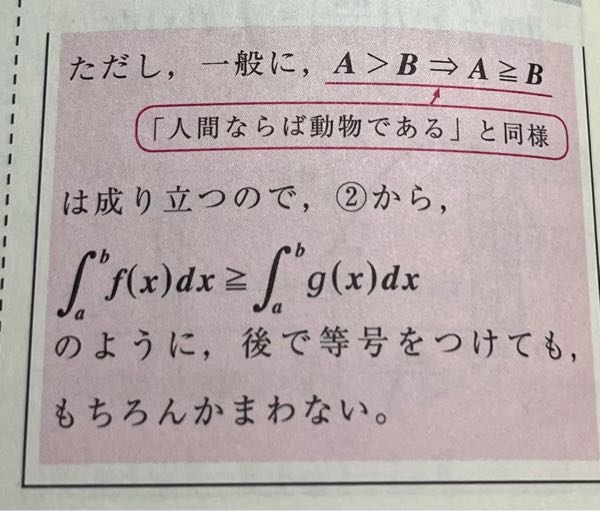 ただし，一般に，A＞B⇒A≧B
「人間ならば動物である」と同様
は成り立つので，②から，
∫ₐᵇf(x)dx≧∫ₐᵇg(x)dx
のように，後で等号をつけても，
もちろんかまわない。